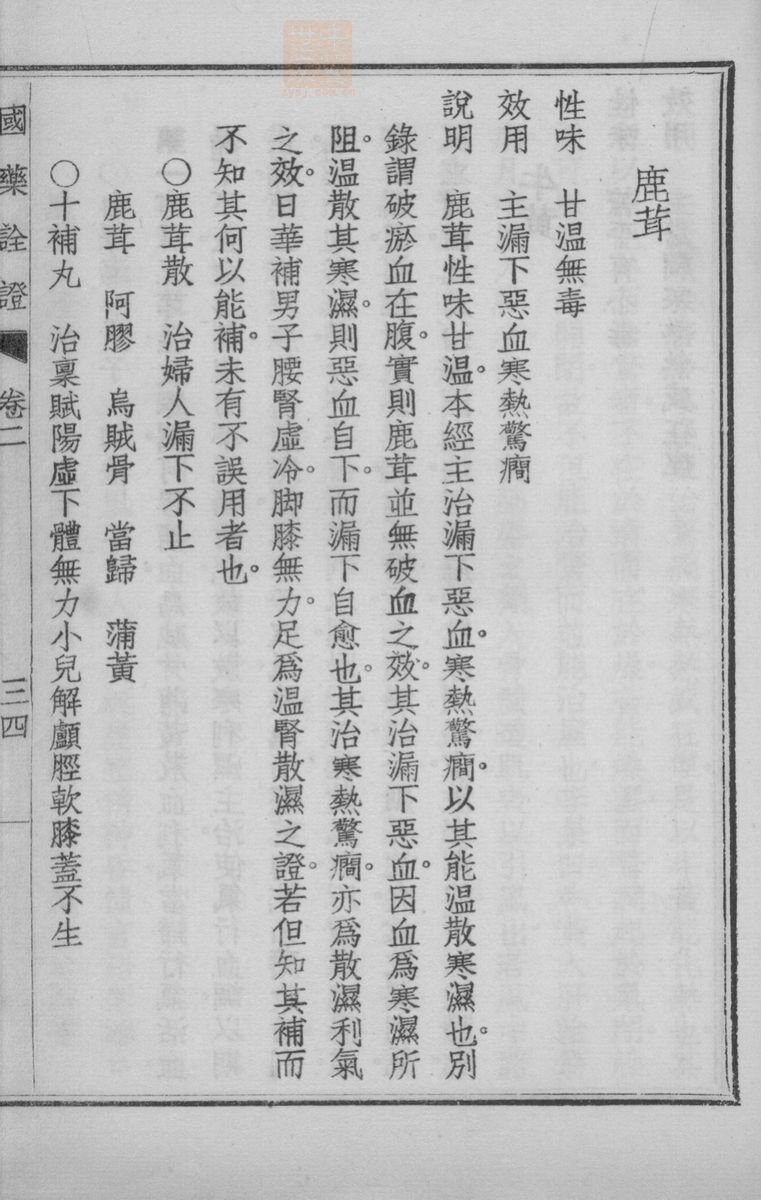 鹿茸
性味　甘温無毒
效用　主漏下惡血寒熱驚癇
說明　鹿茸性味甘温。本經主治漏下惡血。寒熱驚癇。以其能温散寒濕也。別
錄謂破瘀血在腹。實則鹿茸並無破血之效。其治漏下惡血。因血爲寒濕所
阻。温散其寒濕。則惡血自下。而漏下自愈也。其治寒熱驚癇。亦爲散濕利氣
之效。日華補男子腰腎虛冷。脚膝無力。足爲温腎散濕之證。若但知其補而
不知其何以能補。未有不誤用者也。
○鹿茸散　治婦人漏下不止
鹿茸　阿膠　烏賊骨　當歸　蒲黃
○十補丸　治稟賦陽虛下體無力小兒解顱脛軟膝蓋不生
國藥詮證　卷二　三四